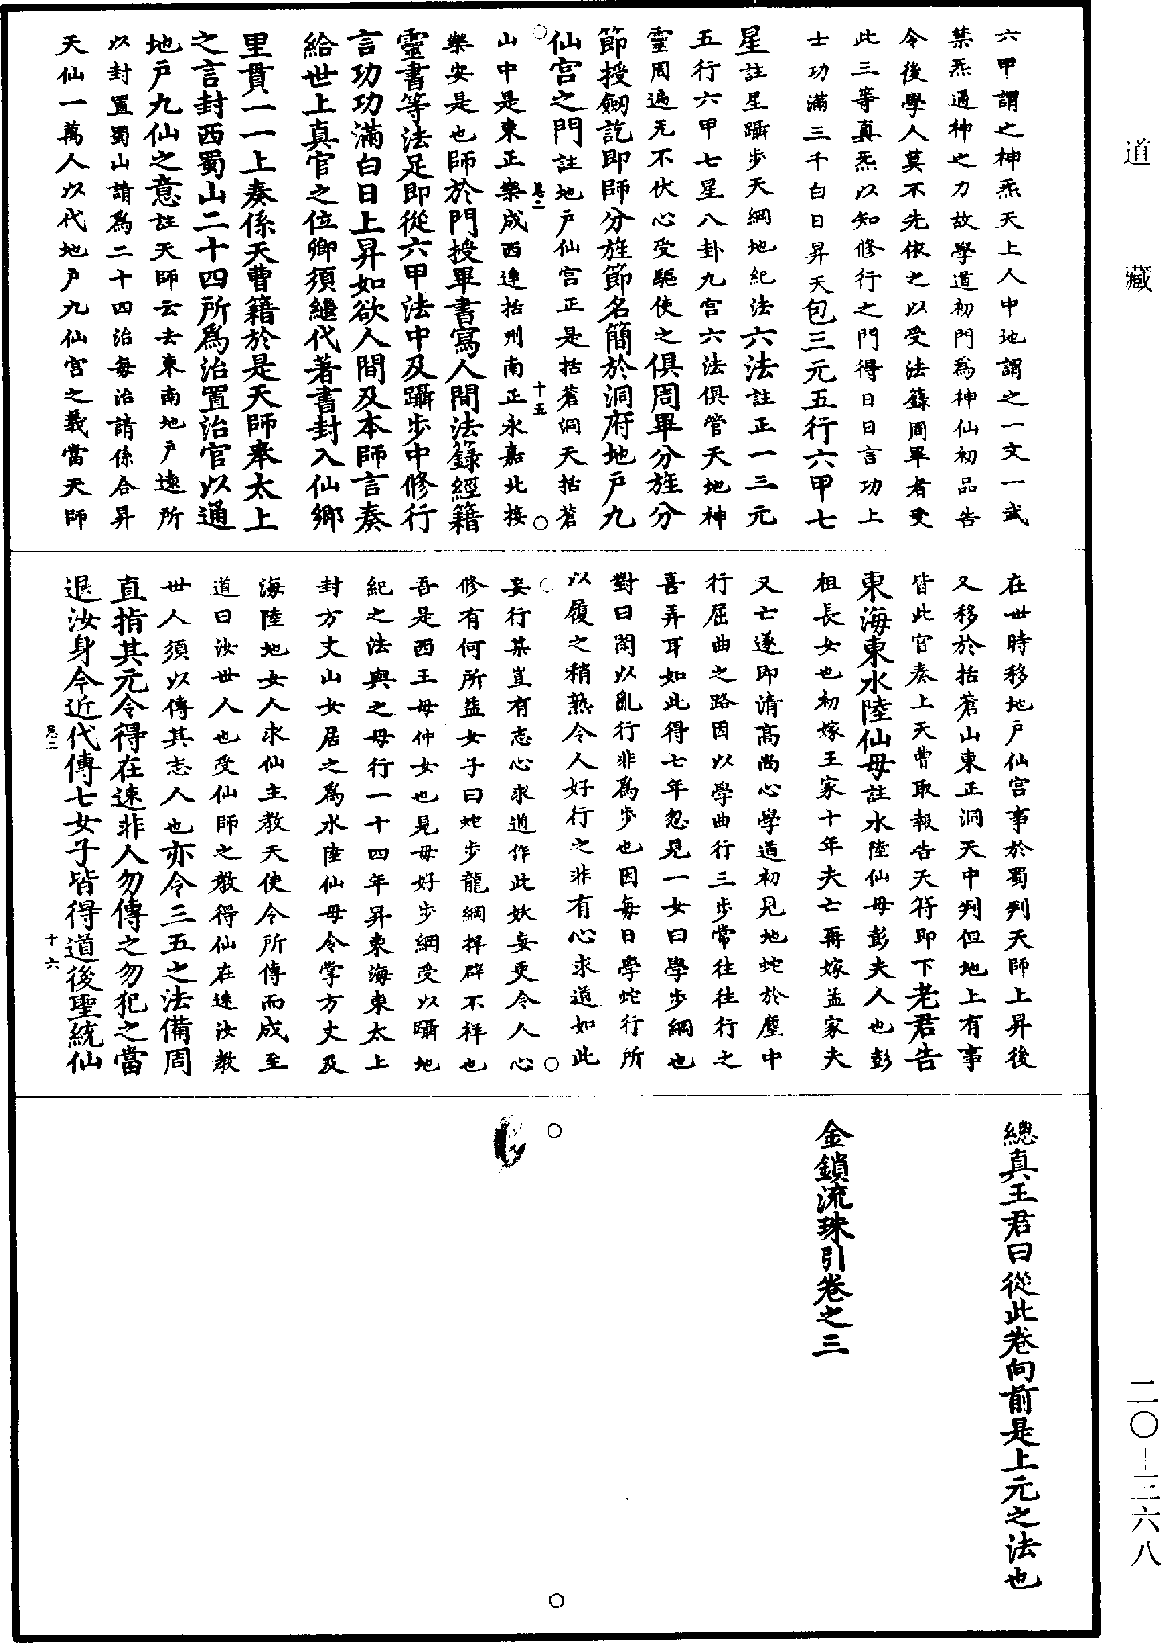 道藏
六甲謂之神炁天上人中地謂之一文一武
禁炁通神之力故學道初門為神仙初品告
令後學人莫不先依之以受法籙周畢者受
此三等真炁以知修行之門得日日言功上
士功滿三千白日昇天包三元五行六甲七
星註星躡步天綱地紀法六法註正一三元
五行六甲七星八卦九宮六法俱管天地神
靈周遍无不伏心受驅使之俱周畢分旌分
節授劒訖即師分旌節名簡於洞府地戶九
仙宮之門註地戶仙宮正是括蒼洞天括蒼
卷三
十五
山中是東正樂成西連括州南正永嘉北接
樂安是也師於門授畢書寫人間法籙經籍
靈書等法足即從六甲法中及躡步中修行
言功功滿白日上昇如欲人間及本師言奏
給世上真官之位卿須繼代著書封入仙鄉
里貫一一上奏係天曹籍於是天師奉太上
之言封西蜀山二十四所為治置治官以通
地戶九仙之意註天師云去東南地戶遠所
以封置蜀山請為二十四治每治請係合昇
天仙一萬人以代地戶九仙宮之義當天師
在世時移地戶仙宮事於蜀判天師上昇後
又移於括蒼山東正洞天中判但地上有事
皆此官奏上天曹取報告天符即下老君告
東海東水陸仙母註水陸仙母彭夫人也彭
祖長女也初嫁王家十年夫亡再嫁孟家夫
又亡遂即清高尚心學道初見地蛇於塵中
行屈曲之路因以學曲行三步常往往行之
喜弄耳如此得七年忽見一女曰學步綱也
對曰閑以亂行非為步也因每日學蛇行所
以履之稍熟令人好行之非有心求道如此
妄行某豈有志心求道作此妖妄更令人心
修有何所益女子曰蛇步龍綱拌群不祥也
吾是西王母仲女也見母好步綱受以躡地
紀之法與之母行一十四年昇東海東太上
封方丈山女居之為水陸仙母令掌方丈及
海陸地女人求仙主教天使令所傳而成至
道曰汝世人也受仙師之教得仙在速汝教
世人須以傳其志人也亦令三五之法備周
直指其元令得在速非人勿傳之勿犯之當
退汝身今近代傳七女子皆得道後聖統仙
卷三
十六
總真王君曰從此卷向前是上元之法也
金鎖流珠引卷之三
二〇—三六八